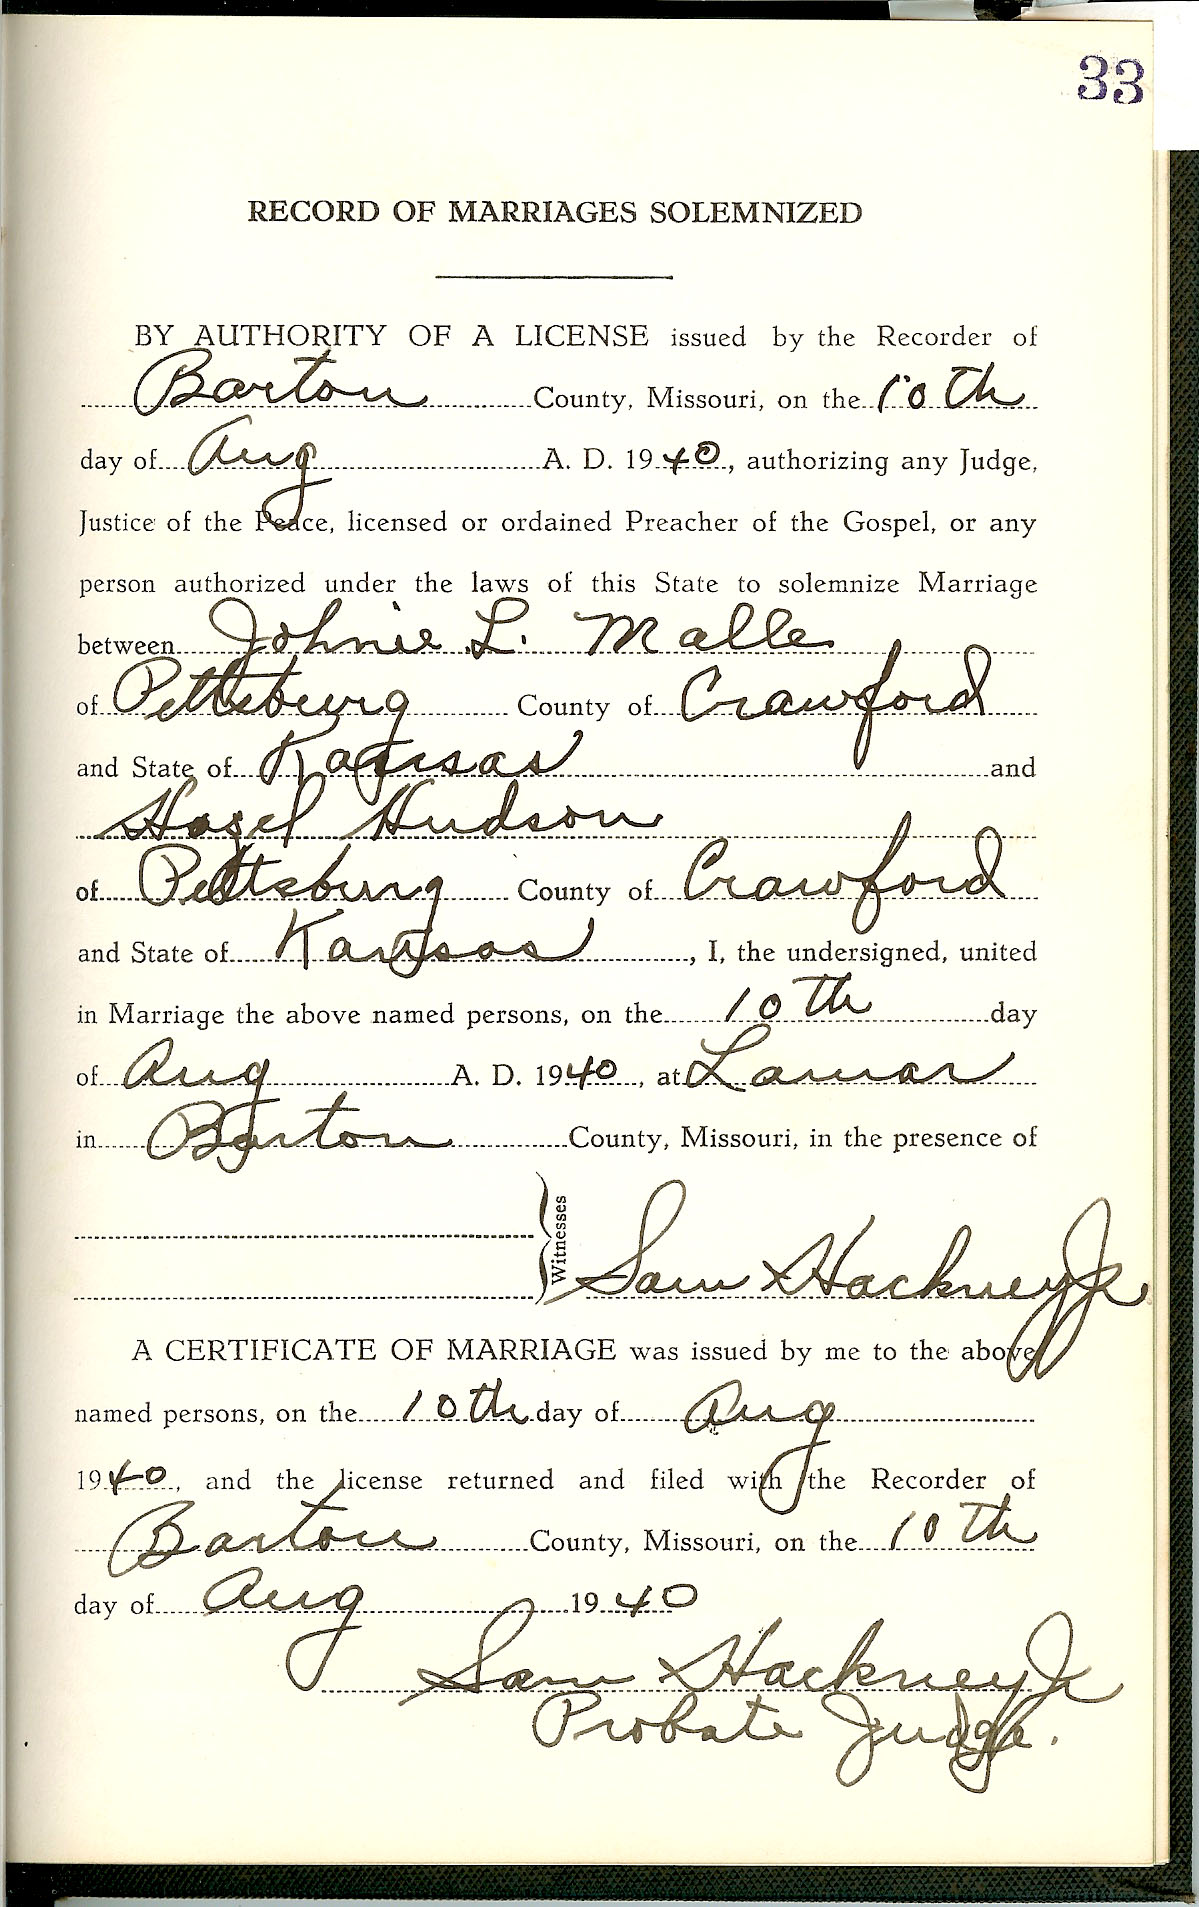 33
RECORD OF MARRIAGES SOLEMNIZED
BY AUTHORITY OF A LICENSE issued by the Recorder of
Barton County, Missouri, on the 10th
day of Aug A. D. 1940, authorizing any Judge,
Justice of the Peace, licensed or ordained Preacher of the Gospel, or any
person authorized under the laws of this State to solemnize Marriage
between Johnie L. Malle
of Pettsburg County of Crawford
and State of Kansas and
Hazel Hudson
of Pettsburg County of Crawford
and State of Kansas, I, the undersigned, united
in Marriage the above named persons, on the 10th day
of Aug A. D. 1940, at Lamar
in Barton County, Missouri, in the presence of
Witnesses
Sam Hackney Jr
A CERTIFICATE OF MARRIAGE was issued by me to the above
named persons, on the 10th day of Aug
1940, and the license returned and filed with the Recorder of
Barton County, Missouri, on the 10th
day of Aug 1940
Sam Hackney Jr
Probate Judge.